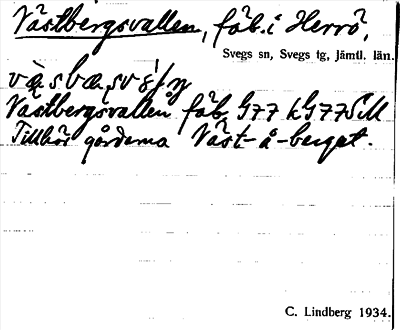 Västbergsvallen, fäb. i Herrö,
Svegs sn, Svegs tg, Jämtl. län.
Västbergsvallen fäb. G77 k G77 SM
Tillhör gårdarna Väst-å-berget.
C. Lindberg 1934.